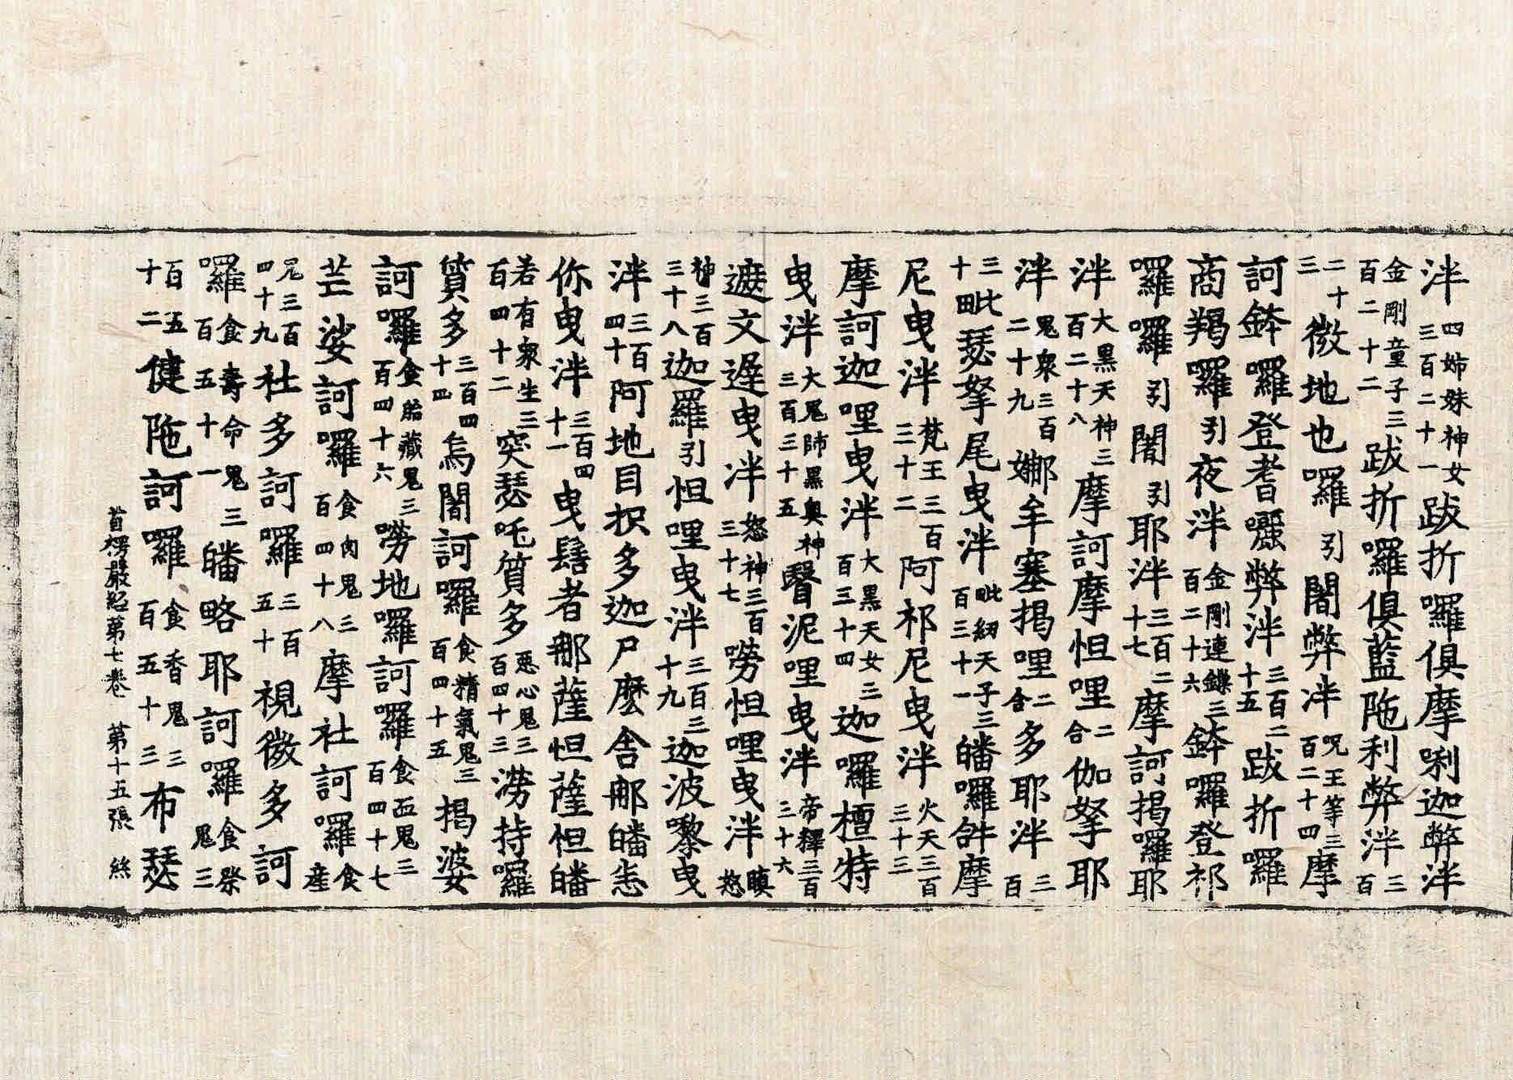 泮四姊妹神女三百二十一跋折囉俱摩唎迦弊泮
金剛童子三百二十二跋折囉俱藍陁利弊泮三百
二十三微地也囉引闇弊泮呪王等三百二十四摩
訶鉢囉登耆囇弊泮三百二十五跋折囉
商羯囉引夜泮金剛連鏁三百二十六鉢囉登祁
囉囉引闍引耶泮三百二十七摩訶揭囉耶
泮大黑天神三百二十八摩訶摩怛哩二合伽拏耶
泮鬼衆三百二十九娜牟塞揭哩二合多耶泮三百
三十毗瑟拏尾曳泮毗紐天子三百三十一皤囉鉼摩
尼曳泮梵王三百三十二阿祁尼曳泮火天三百三十三
摩訶迦哩曳泮大黑天女三百三十四迦囉檀特
曳泮大鬼師黑奥神三百三十五瞖泥哩曳泮帝釋三百三十六
遮文遟曳泮怒神三百三十七嘮怛哩曳泮瞋怒
神三百三十八迦羅引怛哩曳泮三百三十九迦波嚟曳
泮三百四十阿地目抧多迦尸麽舍那皤恙
你曳泮三百四十一曳髾者那薩怛薩怛皤
若有衆生三百四十二突瑟吒質多惡心鬼三百四十三澇持囉
質多三百四十四烏闍訶囉食精氣鬼三百四十五揭婆
訶囉食胎藏鬼三百四十六嘮地囉訶囉食血鬼三百四十七
芒娑訶囉食肉鬼三百四十八摩社訶囉食産
鬼三百四十九社多訶囉三百五十視微多訶
囉食壽命鬼三百五十一皤略耶訶囉食祭鬼三
百五十二健陁訶囉食香鬼三百五十三布瑟
首楞嚴經第七卷 第十五張 絲